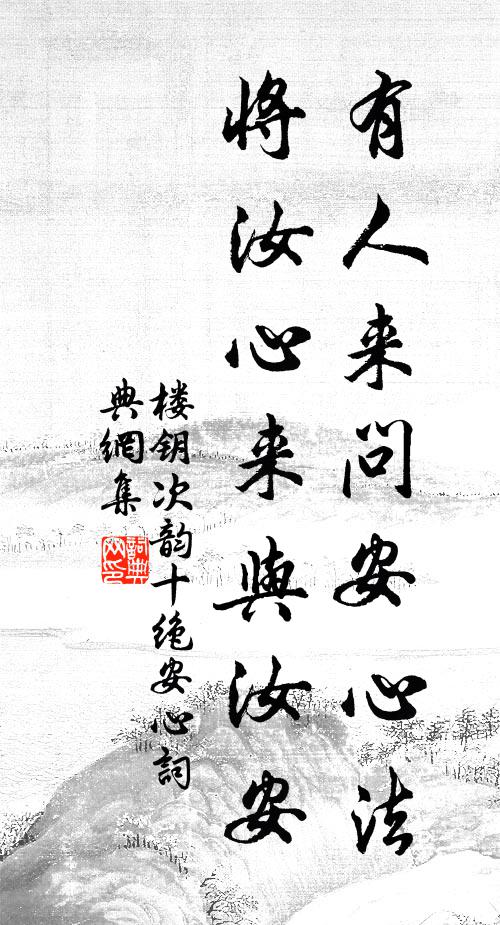 有人来問安心法
将汝心来與汝安
楼钥次韵十绝安心詞
典網集
詞典
网印